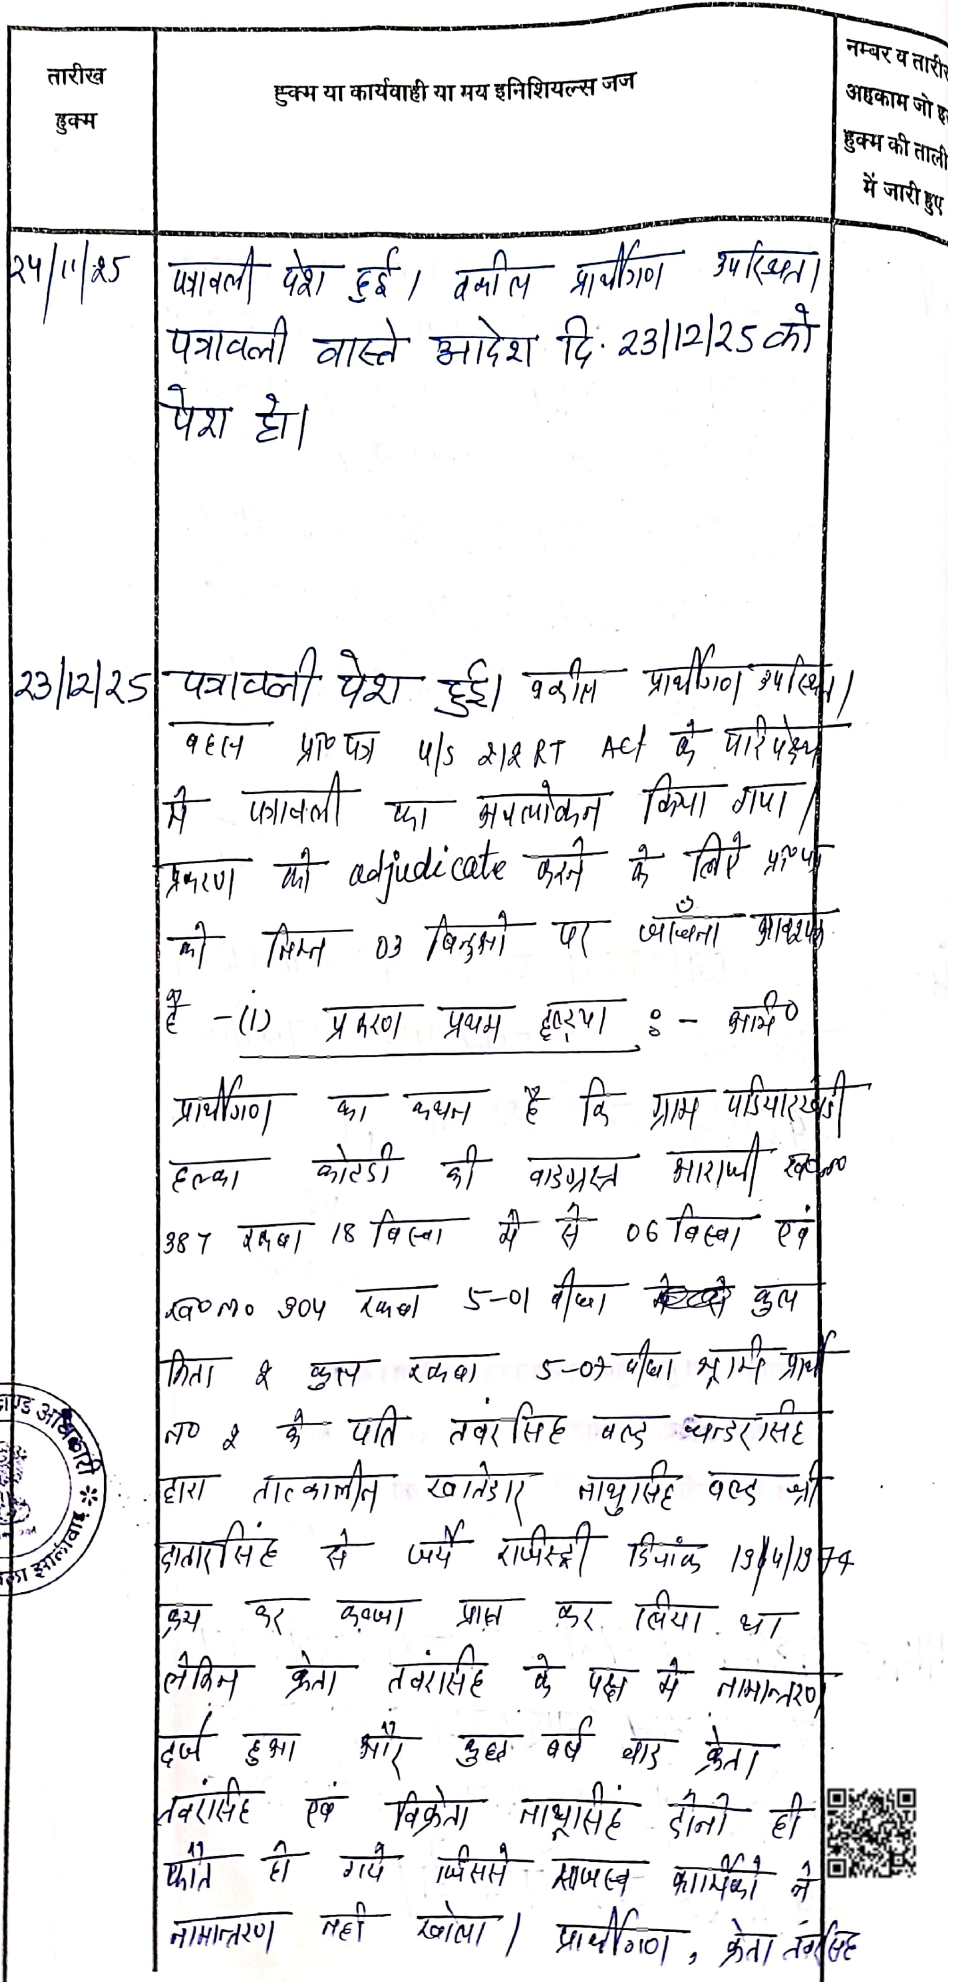 तारीख
हुक्म
हुक्म या कार्यवाही या मय इनिशियल्स जज
नम्बर व तारीख
अहकाम जो इस
हुक्म की ताली
में जारी हुए
24/11/25 पत्रावली पेश हुई। वकील प्रार्थीगण उपस्थित।
पत्रावली वास्ते आदेश दि. 23/12/25 को
पेश हो।
23/12/25 पत्रावली पेश हुई। वकील प्रार्थीगण उपस्थित।
बहस प्रा० पत्र u/s 212 RT Act के परिपेक्ष्य
मे पत्रावली का अवलोकन किया गया।
प्रकरण को adjudicate करने के लिए प्रा० पत्र
को निम्न 03 बिन्दुओ पर जाँचना आवश्यक
है -(i) प्रकरण प्रथम दृष्टया :-
प्रार्थीगण का कथन है कि ग्राम पडियारखेडी
हल्का कोटडी की वादग्रस्त आराजी ख०न०
387 रकबा 18 बिस्वा मे से 06 बिस्वा एवं
ख०न० 304 रकबा 5-01 बीघा कुल
किता 2 कुल रकबा 5-07 बीघा भूमि प्रार्थी
न० 2 के पति तवंरसिंह वल्द
द्वारा तात्कालीन खातेदार नाथुसिंह वल्द श्री
दातारसिंह से जर्ये रजिस्ट्री दिनांक 19/4/1974
क्रय कर कब्जा प्राप्त कर लिया था
लेकिन क्रेता तवंरसिंह के पक्ष मे नामान्तरण
दर्ज हुआ और कुछ वर्ष बाद क्रेता
तवंरसिंह एवं विक्रेता नाथूसिंह दोनो ही
फौत हो गये जिससे राजस्व कार्मिको ने
नामान्तरण नही खोला। प्रार्थीगण, क्रेता तंवरसिंह